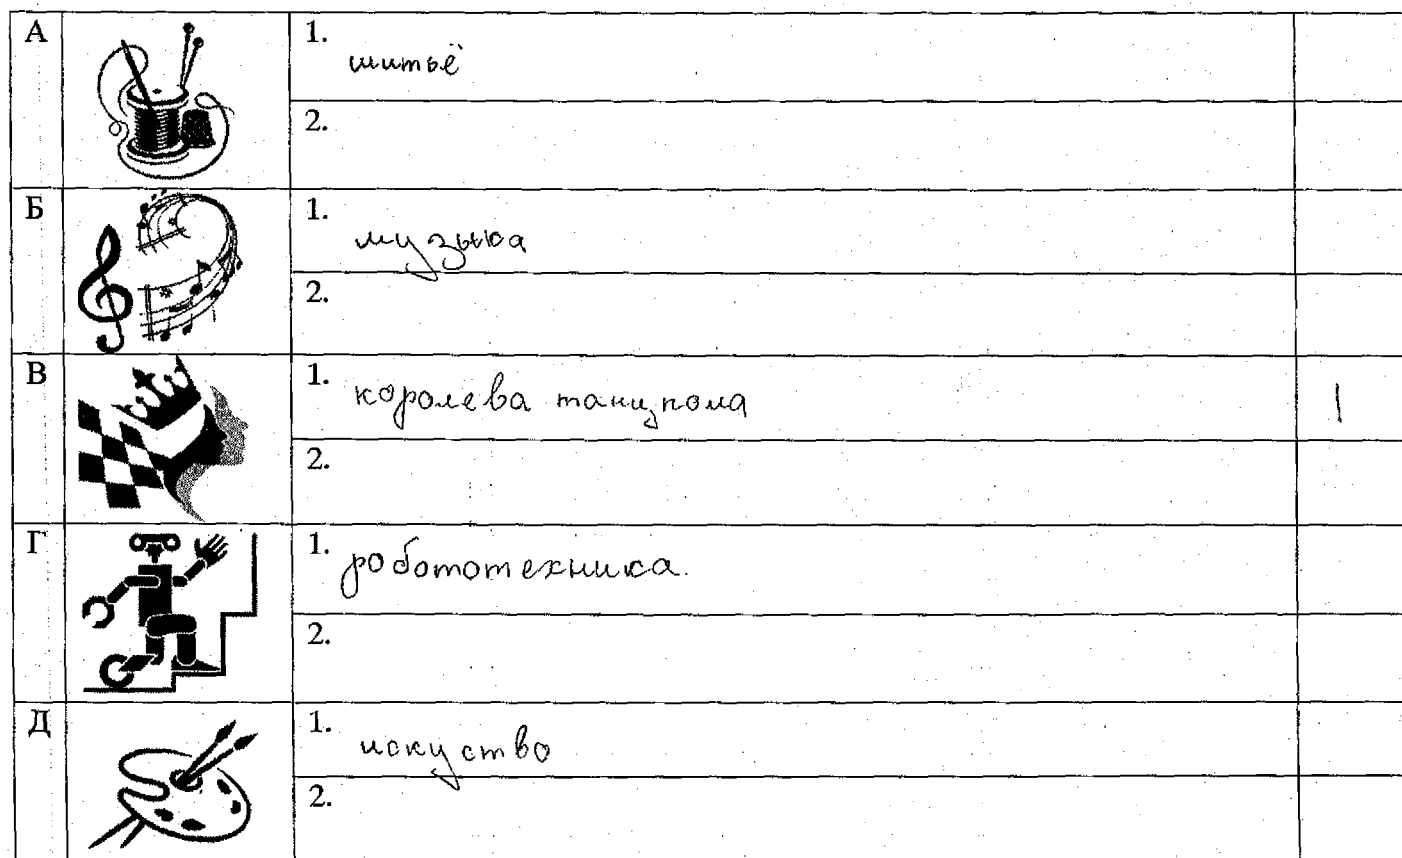 А
1.
шитьё
2.
Б
1.
музыка
2.
В
1.
королева танцпола
1
2.
Г
1.
робототехника.
2.
Д
1.
искуство
2.